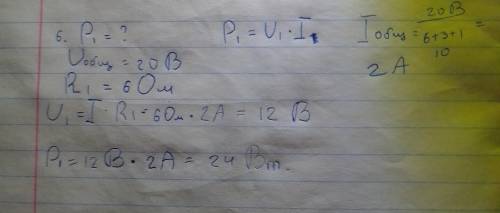 6. P₁ = ?
P₁ = U₁ · I₁
I общ = 20 В / 6+3+1 =
10
2 А
U общ = 20 В
R₁ = 6 Ом
U₁ = I · R₁ = 6 Ом · 2 А = 12 В
P₁ = 12 В · 2 А = 24 Вт.